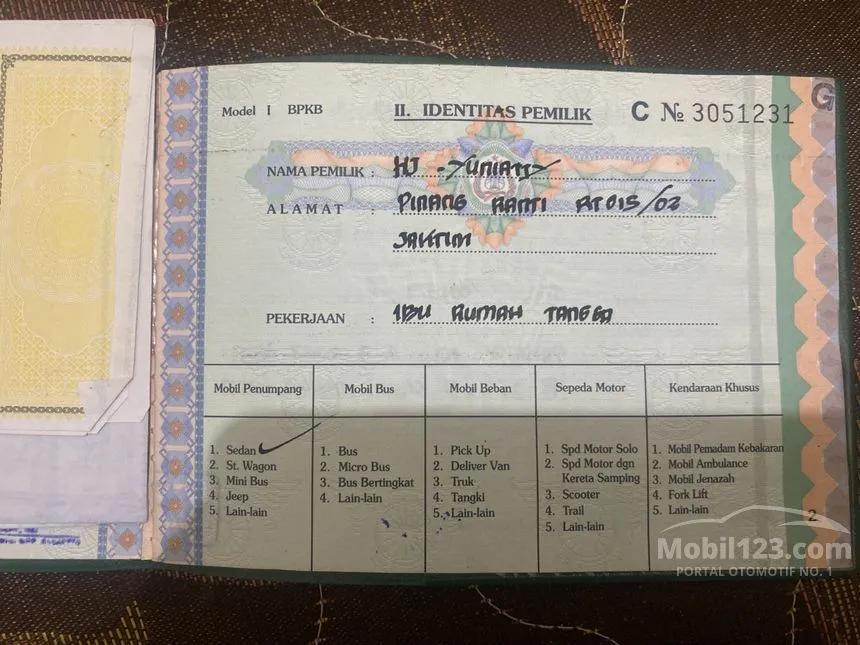 Model I BPKB
II. IDENTITAS PEMILIK
C № 3051231
G
NAMA PEMILIK : HJ - YUNIATI
ALAMAT : PINANG RANTI RT015/02
JAKTIM
PEKERJAAN : IBU RUMAH TANGGA
Mobil Penumpang
1. Sedan
2. St. Wagon
3. Mini Bus
4. Jeep
5. Lain-lain
Mobil Bus
1. Bus
2. Micro Bus
3. Bus Bertingkat
4. Lain-lain
Mobil Beban
1. Pick Up
2. Deliver Van
3. Truk
4. Tangki
5. Lain-lain
Sepeda Motor
1. Spd Motor Solo
2. Spd Motor dgn
Kereta Samping
3. Scooter
4. Trail
5. Lain-lain
Kendaraan Khusus
1. Mobil Pemadam Kebakaran
2. Mobil Ambulance
3. Mobil Jenazah
4. Fork Lift
5. Lain-lain
2
Mobil123.com
PORTAL OTOMOTIF NO. 1